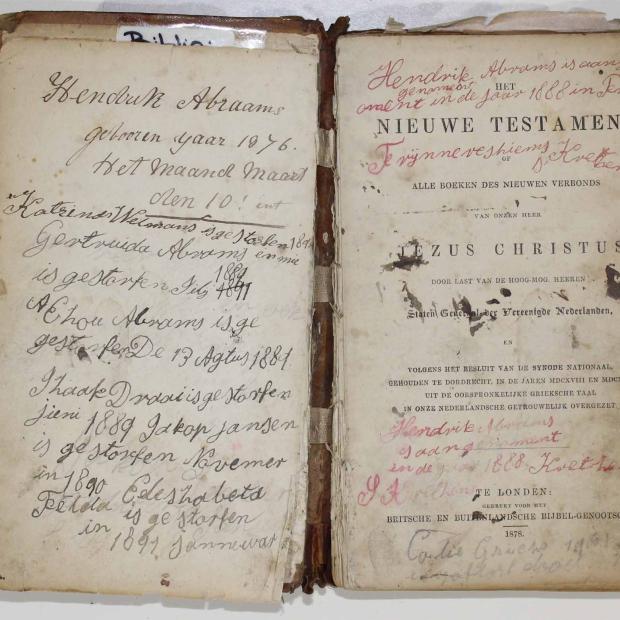 Biblio
Hendrik Abraams
gebooren yaar 1876.
Het Maand Maart
den 10!
Katrina Welmans is gestorben
Gertruida Abrams en
is gestorfen July 1891
1881
AEhou Abrams is ge
gestorfen De 13 Agtus 1881
Ihaak Draai is gestorfen
jieni 1889 Jakop jansen
is gestorfen Novemer
in 1890
Felda Edeshabeta
in is gestorfen
1891 Jannewar
Hendrik Abrams is aan
genomen HET
oment in de Jaar 1888 in
NIEUWE TESTAMEN
OF
ALLE BOEKEN DES NIEUWEN VERBONDS
VAN ONZEN HEER
JEZUS CHRISTUS
DOOR LAST VAN DE HOOG-MOG. HEEREN
Staten Generaal der Vereenigde Nederlanden,
EN
VOLGENS HET BESLUIT VAN DE SYNODE NATIONAAL,
GEHOUDEN TE DORDRECHT, IN DE JAREN MDCXVIII EN MDC
UIT DE OORSPRONKELIJKE GRIEKSCHE TAAL
IN ONZE NEDERLANDSCHE GETROUWELIJK OVERGEZET
Hendrik Abrams
is aangenoment
in de jaar 1888
TE LONDEN:
GEDRUKT VOOR HET
BRITSCHE EN BUITENLANDSCHE BIJBEL-GENOOTSC
1878.